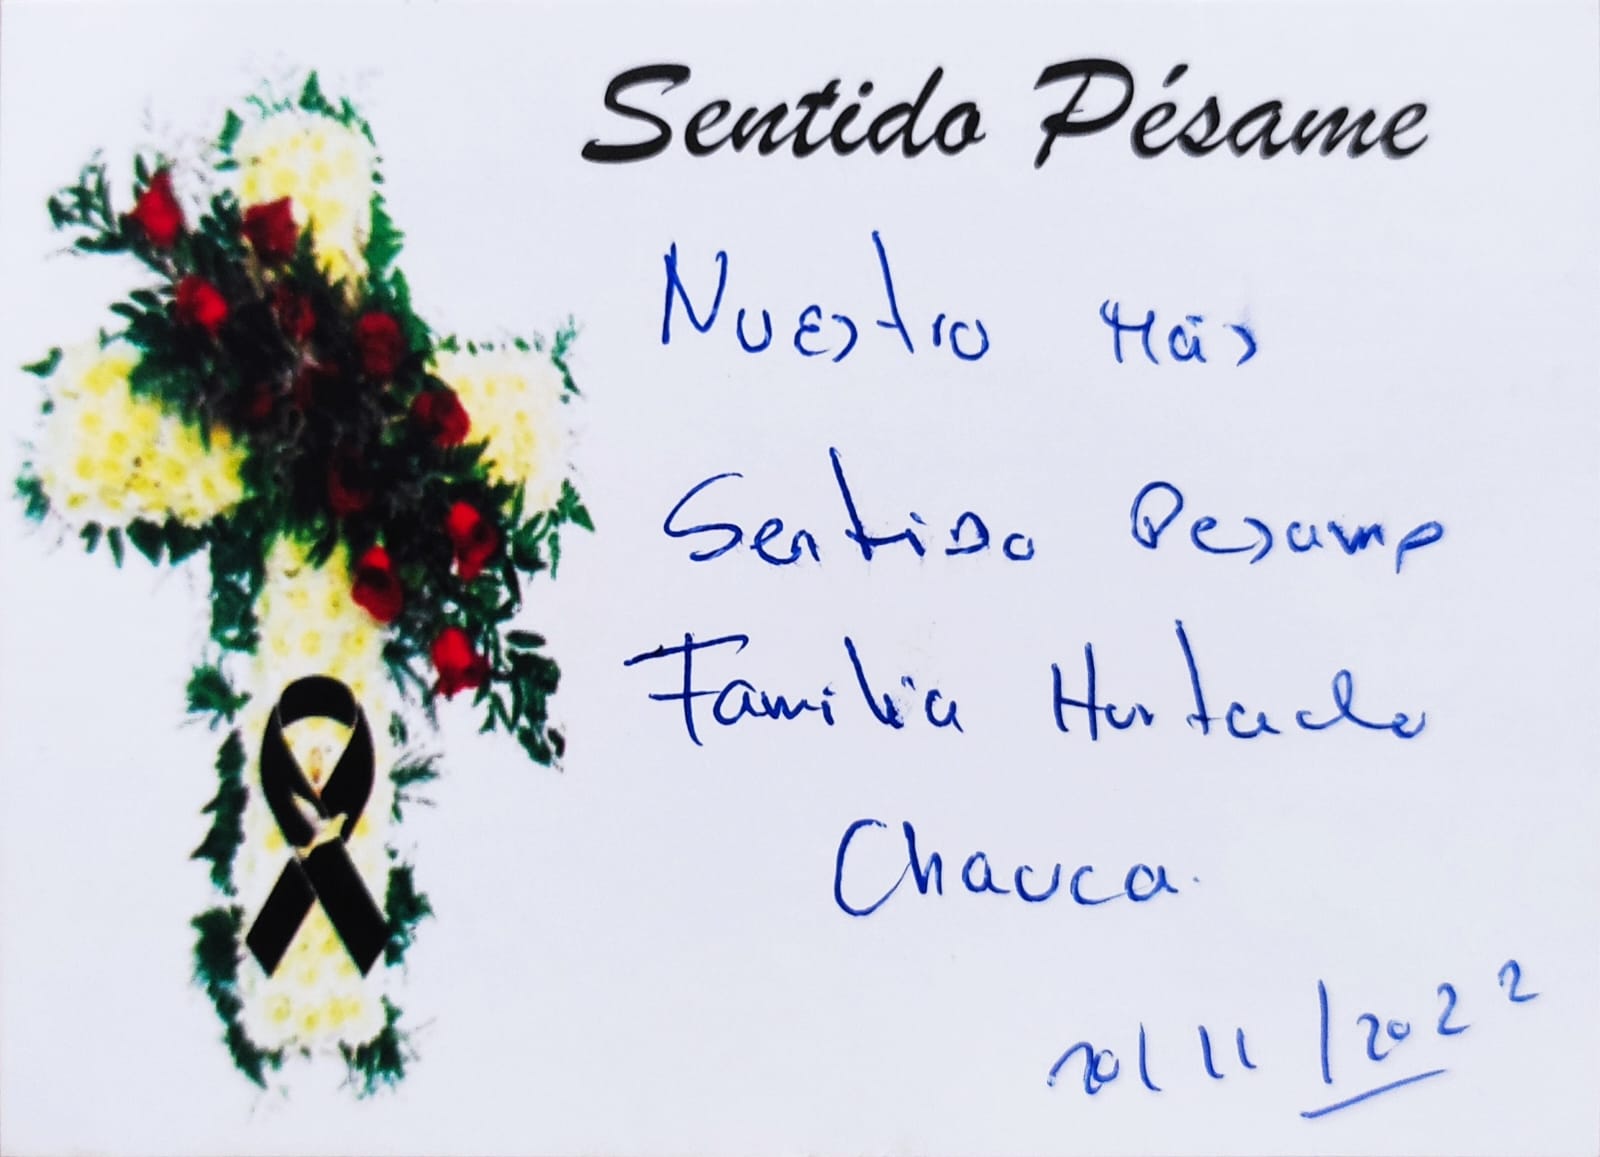 Sentido Pésame
Nuestro Más
Sentido Pesame
Familia Hurtado
Chauca.
20/11/2022